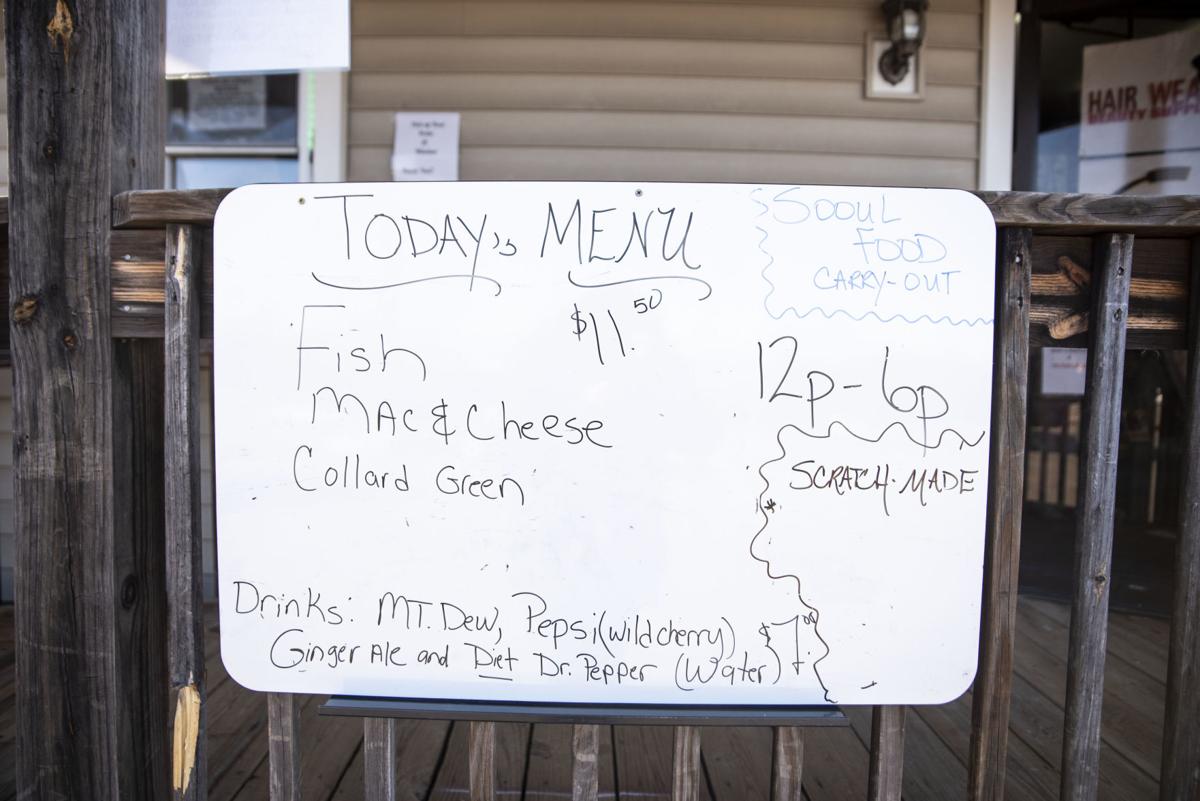 TODAY'S MENU
$11.50
Fish
MAC & Cheese
Collard Green
Drinks: MT. Dew, Pepsi (wild cherry)
Ginger Ale and Diet Dr. Pepper (Water) $1.00
SOOUL
FOOD
CARRY-OUT
12p-6p
SCRATCH-MADE
HAIR WEA